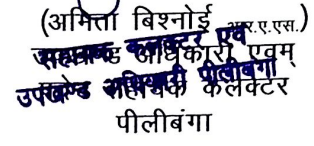 (अमिता बिश्नोई आर.ए.एस.)
सहायक कलक्टर एवं
उपखण्ड अधिकारी एवम्
उपखण्ड अधिकारी पीलीबंगा
सहायक कलेक्टर
पीलीबंगा